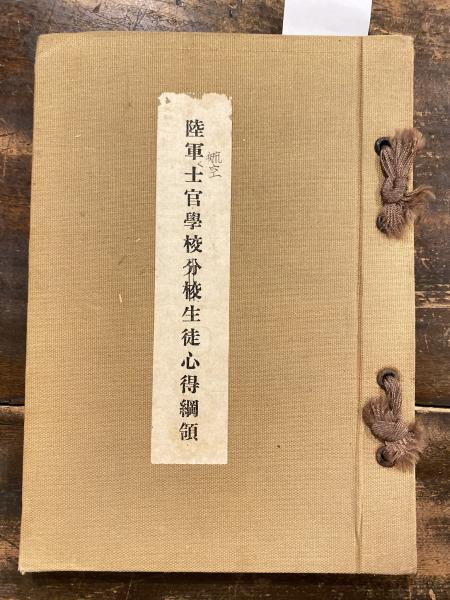 陸軍士官學校分校生徒心得綱領
航空